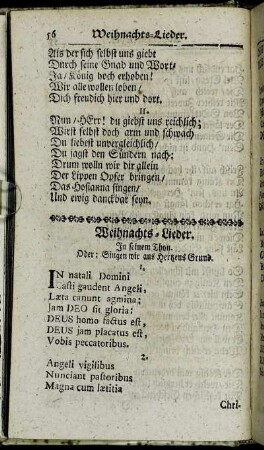 56 Weihnachts-Lieder.
Als der sich selbst uns giebt
Durch seine Gnad und Wort/
Ja/ König hoch erhoben!
Wir alle wollen loben/
Dich freudich hier und dort.
11.
Nun/ HErr! du giebst uns reichlich;
Wirst selbst doch arm und schwach
Du liebest unvergleichlich/
Du jagst den Sündern nach:
Drum wolln wir dir allein
Der Lippen Opfer bringen/
Das Hosianna singen/
Und ewig danckbar seyn.
Weihnachts-Lieder.
In seinem Thon.
Oder: Singen wir aus Hertzens Grund.
1.
IN natali Domini
Casti gaudent Angeli,
Læta canunt agmina;
jam DEO sit gloria:
DEUS homo factus est,
DEUS jam placatus est,
Vobis peccatoribus.
2.
Angeli vigilibus
Nunciant pastoribus
Magna cum lætitia
Chri-